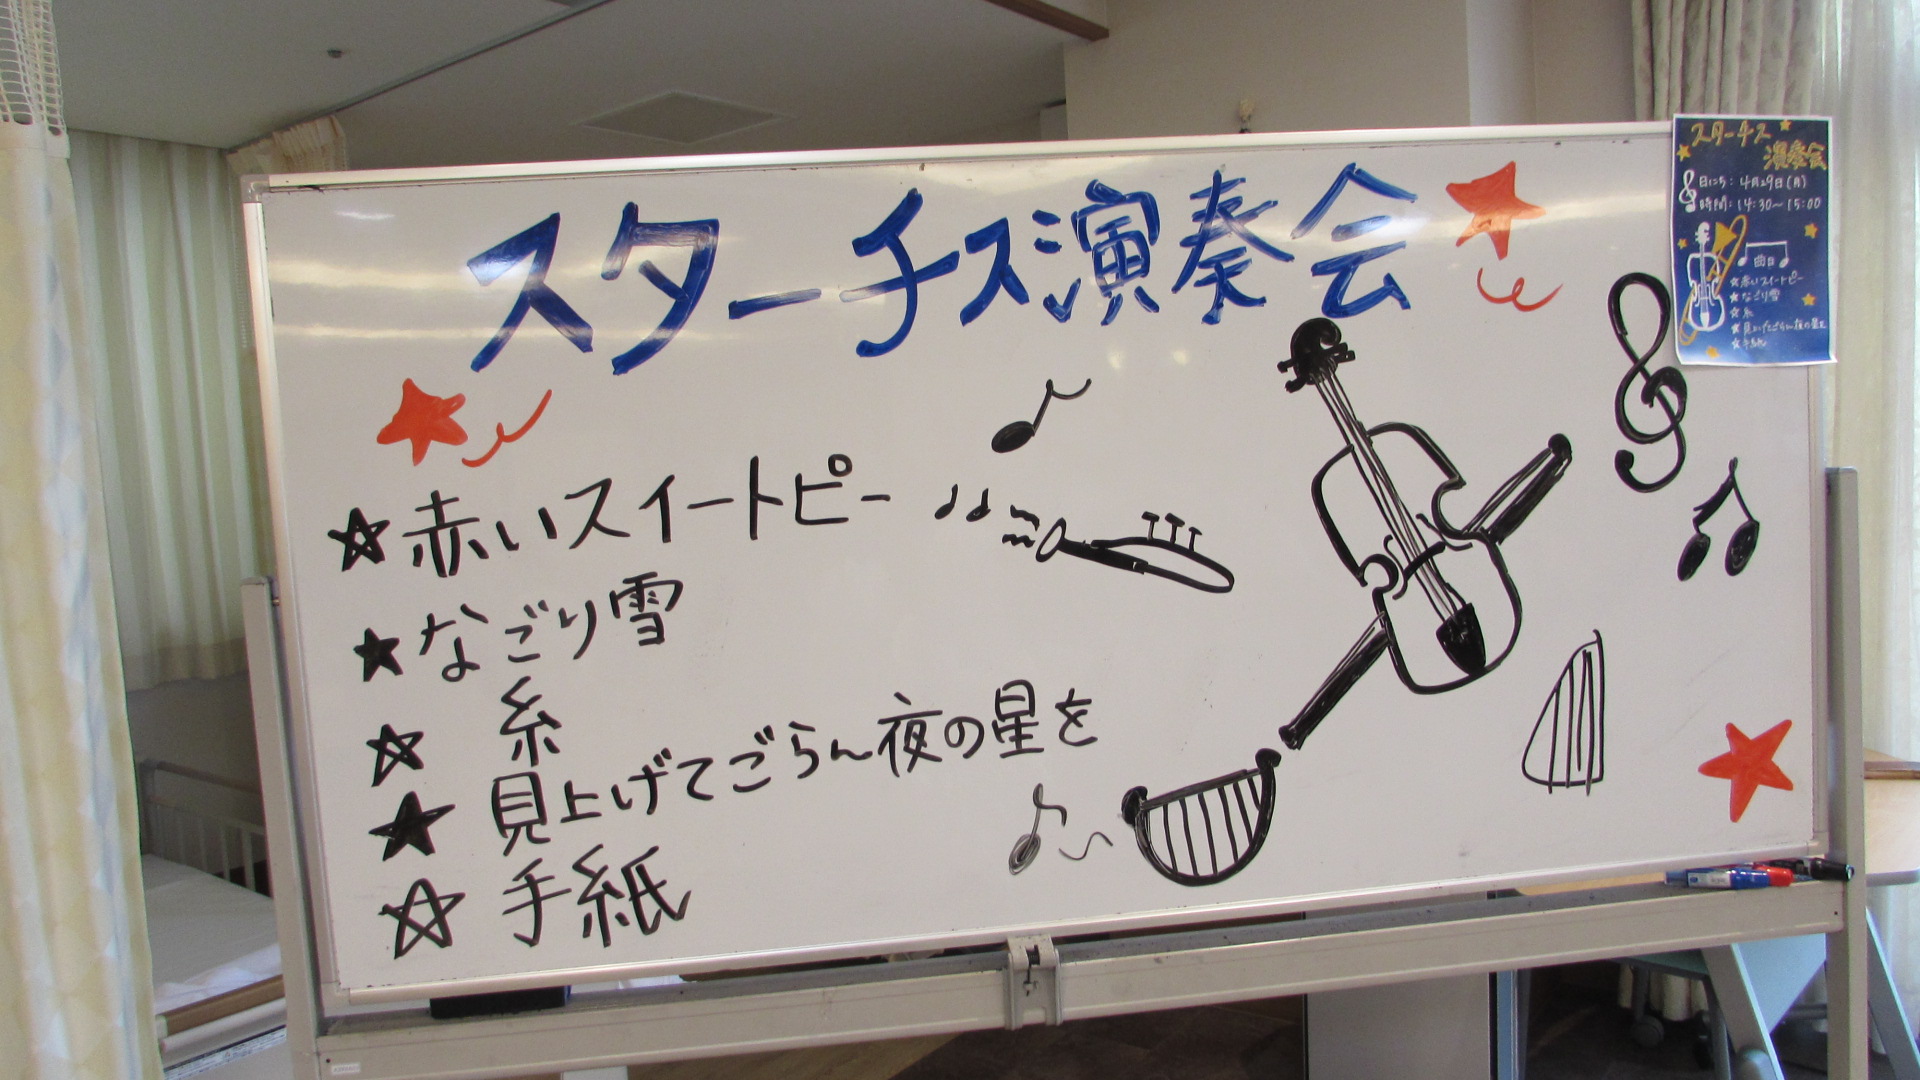 スターチス演奏会
☆赤いスイートピー
★なごり雪
☆ 糸
★ 見上げてごらん夜の星を
☆ 手紙
スターチス
演奏会
日にち：4月29日(月)
時間：14:30～15:00
曲目
★赤いスイートピー
★なごり雪
★糸
★見上げてごらん夜の星を
★手紙